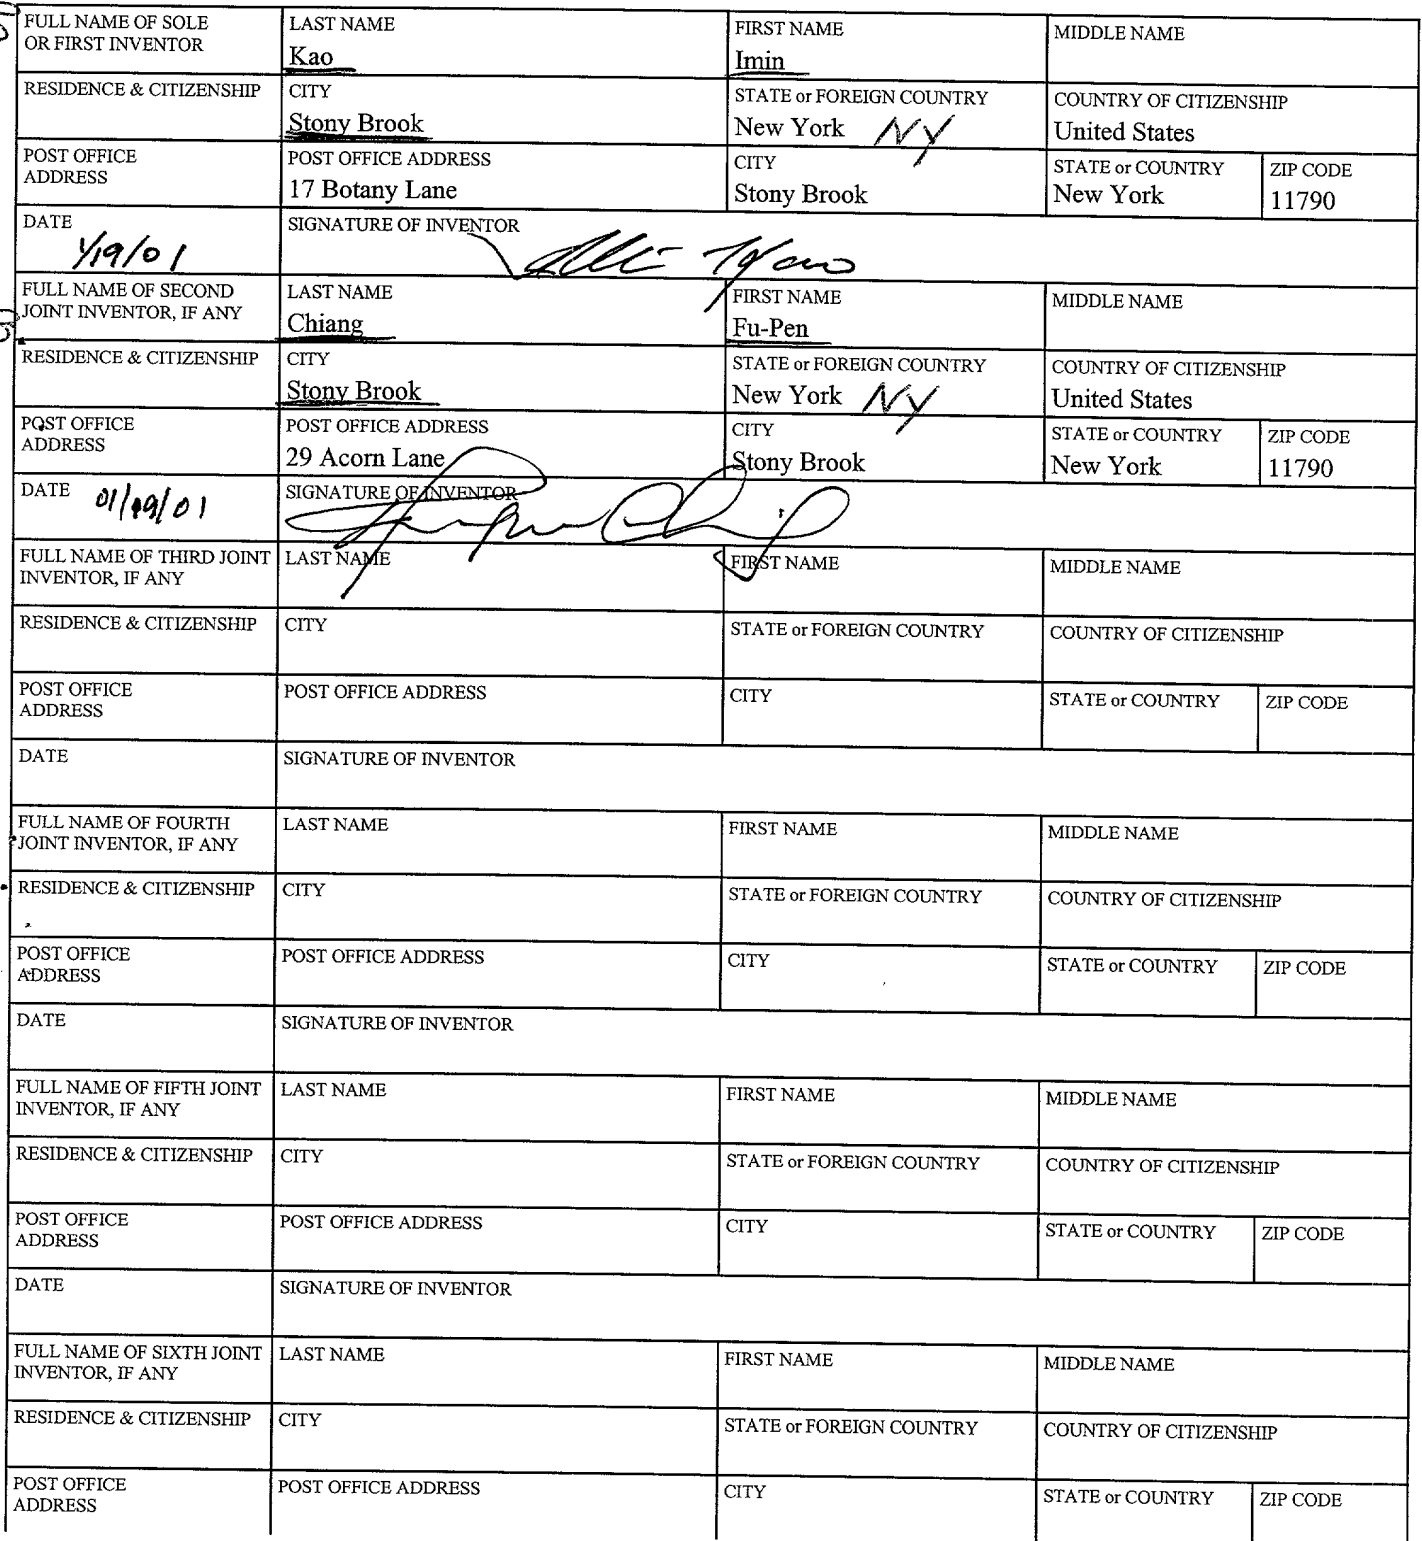 FULL NAME OF SOLE OR FIRST INVENTOR
LAST NAME
Kao
FIRST NAME
Imin
MIDDLE NAME
RESIDENCE & CITIZENSHIP
CITY
Stony Brook
STATE or FOREIGN COUNTRY
New York NY
COUNTRY OF CITIZENSHIP
United States
POST OFFICE ADDRESS
POST OFFICE ADDRESS
17 Botany Lane
CITY
Stony Brook
STATE or COUNTRY
New York
ZIP CODE
11790
DATE
1/19/01
SIGNATURE OF INVENTOR
FULL NAME OF SECOND JOINT INVENTOR, IF ANY
LAST NAME
Chiang
FIRST NAME
Fu-Pen
MIDDLE NAME
RESIDENCE & CITIZENSHIP
CITY
Stony Brook
STATE or FOREIGN COUNTRY
New York NY
COUNTRY OF CITIZENSHIP
United States
POST OFFICE ADDRESS
POST OFFICE ADDRESS
29 Acorn Lane
CITY
Stony Brook
STATE or COUNTRY
New York
ZIP CODE
11790
DATE 01/19/01
SIGNATURE OF INVENTOR
FULL NAME OF THIRD JOINT INVENTOR, IF ANY
LAST NAME
FIRST NAME
MIDDLE NAME
RESIDENCE & CITIZENSHIP
CITY
STATE or FOREIGN COUNTRY
COUNTRY OF CITIZENSHIP
POST OFFICE ADDRESS
POST OFFICE ADDRESS
CITY
STATE or COUNTRY
ZIP CODE
DATE
SIGNATURE OF INVENTOR
FULL NAME OF FOURTH JOINT INVENTOR, IF ANY
LAST NAME
FIRST NAME
MIDDLE NAME
RESIDENCE & CITIZENSHIP
CITY
STATE or FOREIGN COUNTRY
COUNTRY OF CITIZENSHIP
POST OFFICE ADDRESS
POST OFFICE ADDRESS
CITY
STATE or COUNTRY
ZIP CODE
DATE
SIGNATURE OF INVENTOR
FULL NAME OF FIFTH JOINT INVENTOR, IF ANY
LAST NAME
FIRST NAME
MIDDLE NAME
RESIDENCE & CITIZENSHIP
CITY
STATE or FOREIGN COUNTRY
COUNTRY OF CITIZENSHIP
POST OFFICE ADDRESS
POST OFFICE ADDRESS
CITY
STATE or COUNTRY
ZIP CODE
DATE
SIGNATURE OF INVENTOR
FULL NAME OF SIXTH JOINT INVENTOR, IF ANY
LAST NAME
FIRST NAME
MIDDLE NAME
RESIDENCE & CITIZENSHIP
CITY
STATE or FOREIGN COUNTRY
COUNTRY OF CITIZENSHIP
POST OFFICE ADDRESS
POST OFFICE ADDRESS
CITY
STATE or COUNTRY
ZIP CODE